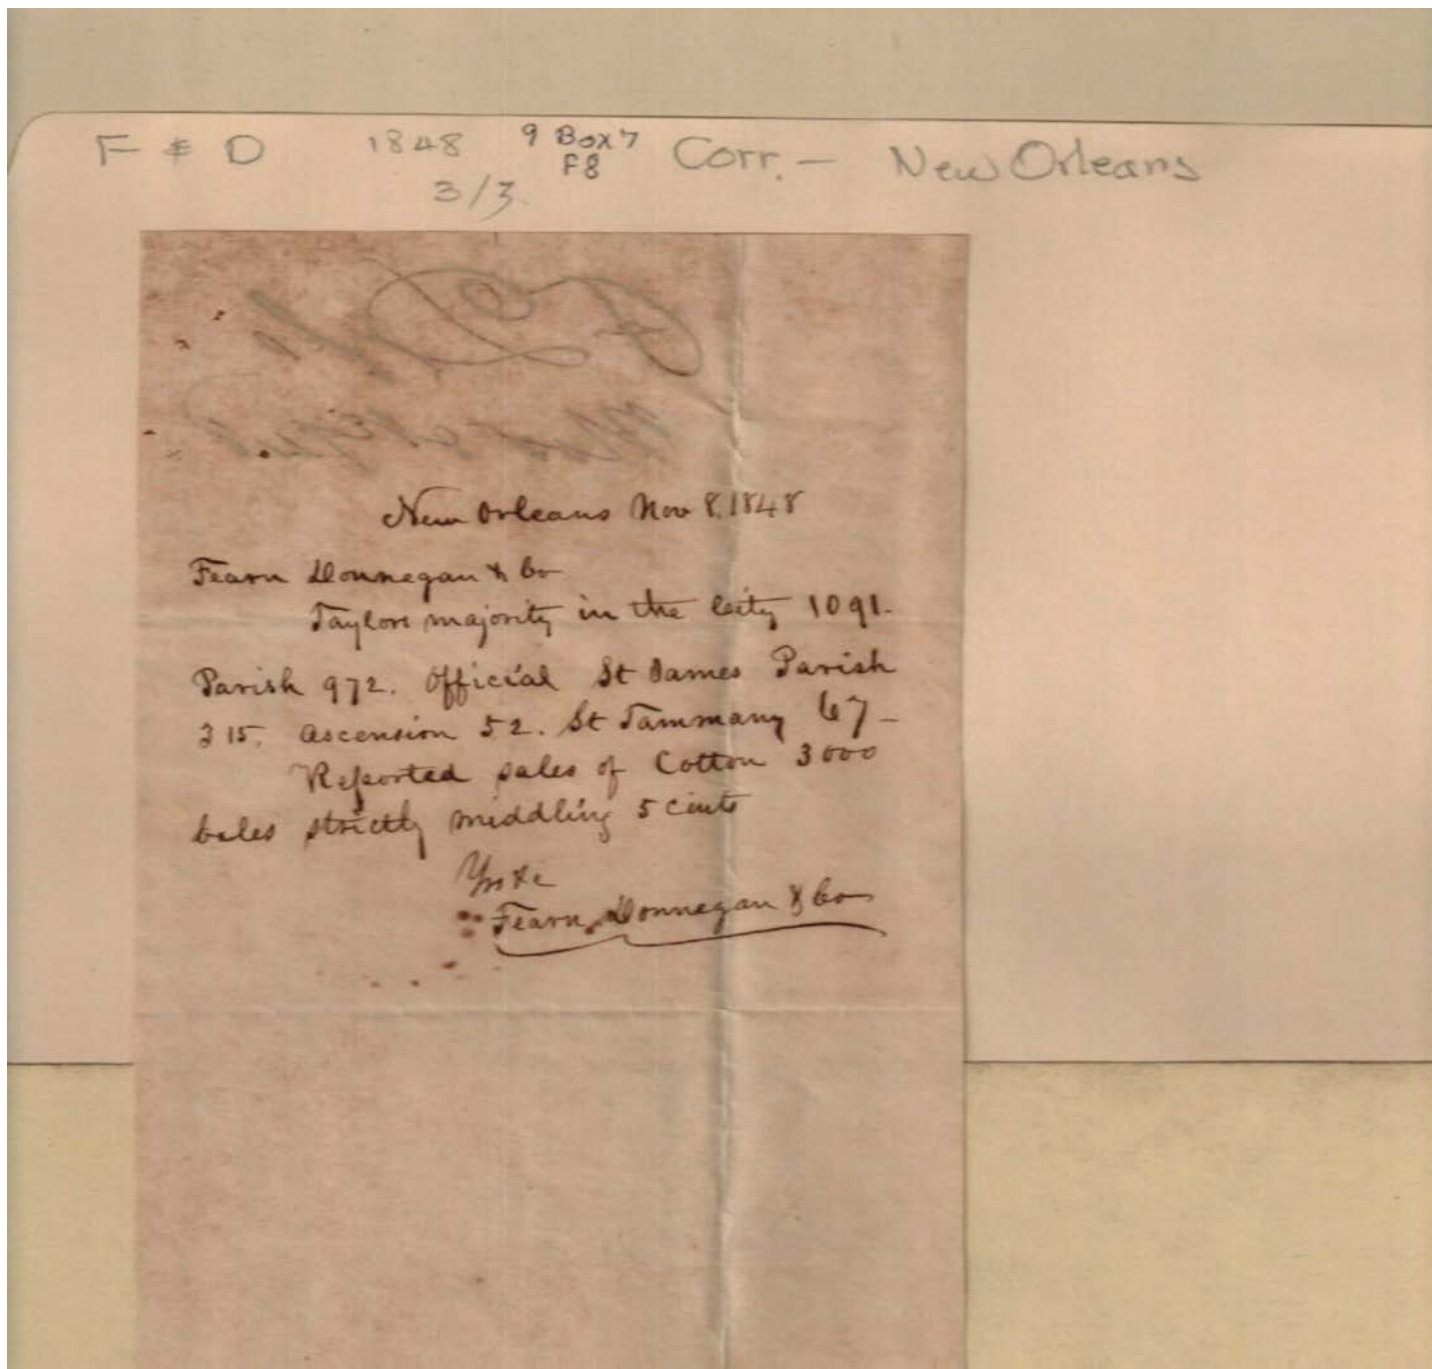 F & D 1848 9 Box 7 Corr. - New Orleans
F8
3/3.
New Orleans Nov 8. 1848
Fearn Donnegan & Co
Taylors majority in the City 1091.
Parish 972. Official St James Parish
315. Ascension 52. St Tammany 67 -
Reported sales of Cotton 3000
bales strictly middling 5 cents
Yrs &c
Fearn, Donnegan & Co